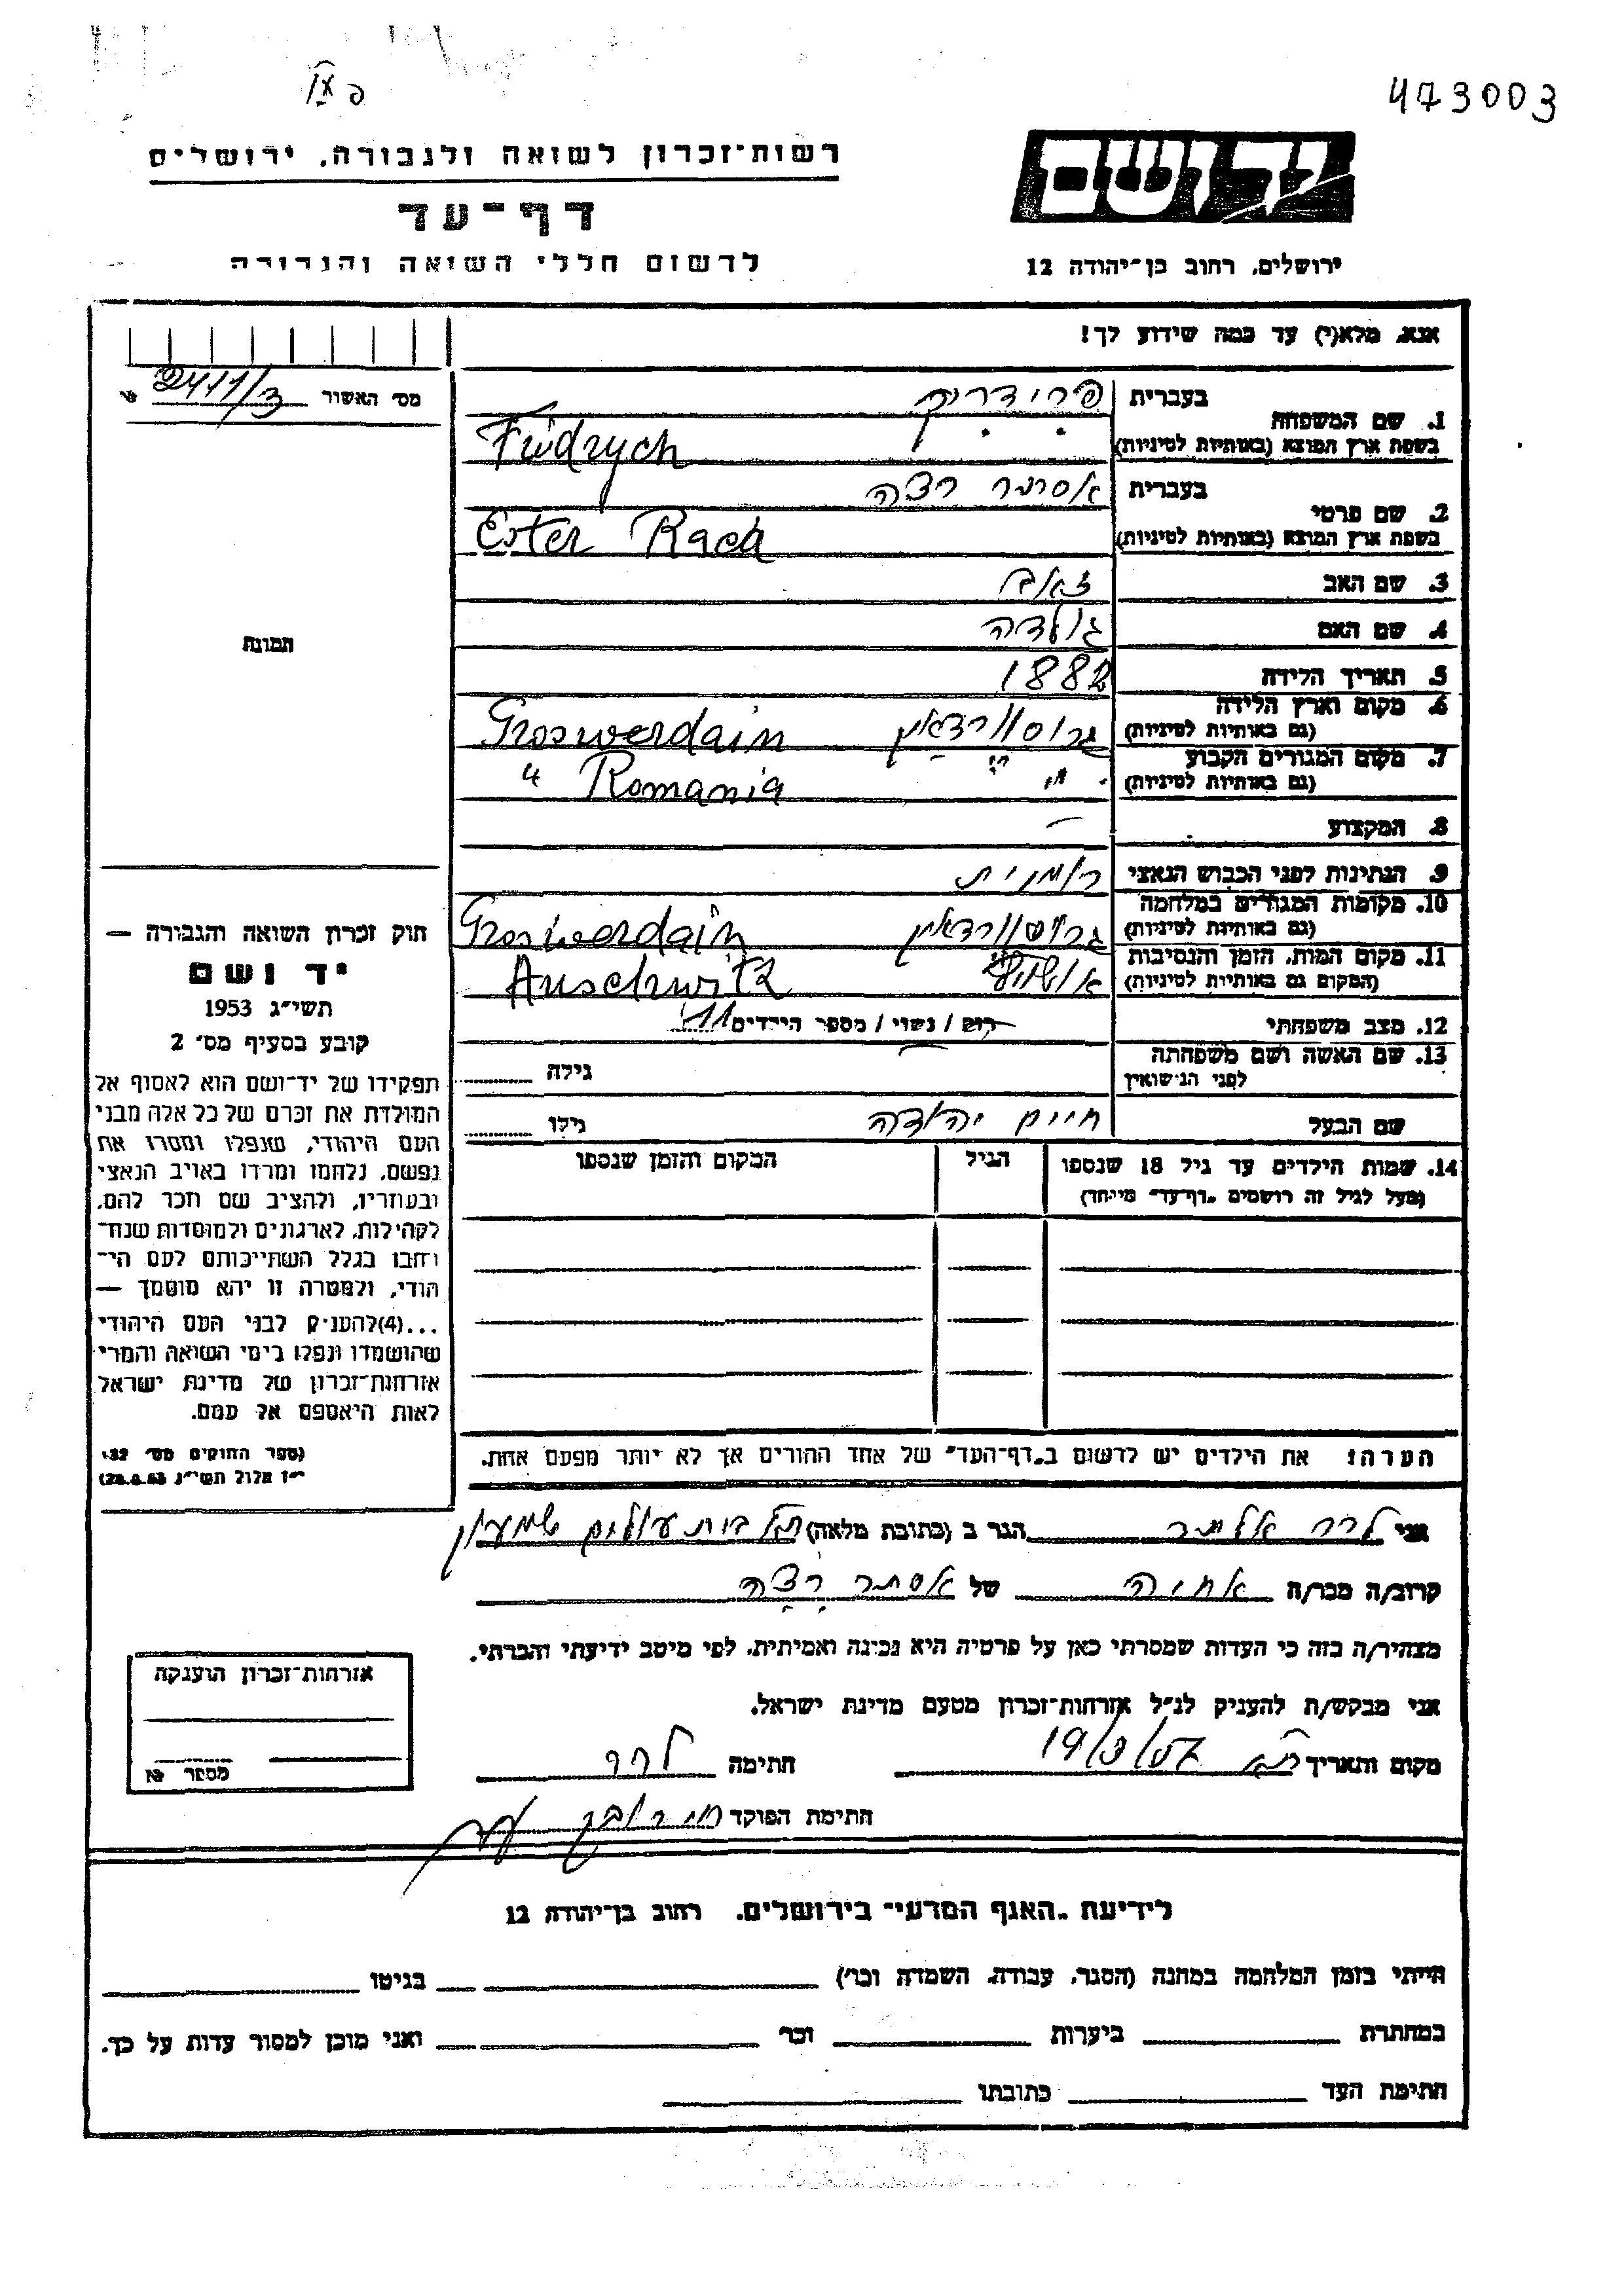 473003
רשות־זכרון לשואה ולגבורה, ירושלים
יד ושם
דף־עד
לרשום חללי השואה והגבורה
ירושלים, רחוב בן־יהודה 12
אנא, מלא(י) עד כמה שידוע לך!
מס׳ האשור 2411/3
1. שם המשפחה
בעברית פרידריך
בשפת ארץ המוצא (באותיות לטיניות) Fridrych
2. שם פרטי
בעברית אסתר רצה
בשפת ארץ המוצא (באותיות לטיניות) Ester Raca
3. שם האב זאב
4. שם האם גולדה
תמונה
5. תאריך הלידה 1882
6. מקום וארץ הלידה גרוסוורדאין Groswerdain
(גם באותיות לטיניות)
7. מקום המגורים הקבוע " " " Romania
(גם באותיות לטיניות)
8. המקצוע —
9. הנתינות לפני הכבוש הנאצי רומנית
10. מקומות המגורים במלחמה גרוסוורדאין Groswerdain
(גם באותיות לטיניות)
11. מקום המות, הזמן והנסיבות אושוויץ Auschwitz
(המקום גם באותיות לטיניות)
12. מצב משפחתי רוק / נשוי / מספר הילדים 11
13. שם האשה ושם משפחתה — גילה
לפני הנישואין
שם הבעל חיים יהודה גילו
14. שמות הילדים עד גיל 18 שנספו הגיל המקום והזמן שנספו
(מעל לגיל זה רושמים „דף־עד" מיוחד)
חוק זכרון השואה והגבורה —
יד ושם
תשי״ג 1953
קובע בסעיף מס׳ 2
תפקידו של יד־ושם הוא לאסוף אל
המולדת את זכרם של כל אלה מבני
העם היהודי, שנפלו ומסרו את
נפשם, נלחמו ומרדו באויב הנאצי
ובעוזריו, ולהציב שם וזכר להם,
לקהילות, לארגונים ולמוסדות שנח־
רבו בגלל השתייכותם לעם הי־
הודי, ולמטרה זו יהא מוסמך —
...(4)להעניק לבני העם היהודי
שהושמדו ונפלו בימי השואה והמרי
אזרחות־זכרון של מדינת ישראל
לאות היאספם אל עמם.
(ספר החוקים מס׳ 132
י״ז אלול תשי״ג 28.8.53)
הערה: את הילדים יש לרשום ב„דף־העד" של אחד ההורים אך לא יותר מפעם אחת.
אני הגר ב (כתובת מלאה)
קרוב/ה מכר/ה של אסתר רצה
מצהיר/ה בזה כי העדות שמסרתי כאן על פרטיה היא נכונה ואמיתית, לפי מיטב ידיעתי והכרתי.
אני מבקש/ת להעניק לנ״ל אזרחות־זכרון מטעם מדינת ישראל.
מקום ותאריך ת״א חתימה
חתימת הפוקד
אזרחות־זכרון הוענקה
מספר №
לידיעת „האגף המדעי" בירושלים, רחוב בן־יהודה 12
הייתי בזמן המלחמה במחנה (הסגר, עבודה, השמדה וכו׳) בגיטו
במחתרת ביערות וכו׳ ואני מוכן למסור עדות על כך.
חתימת העד כתובתו